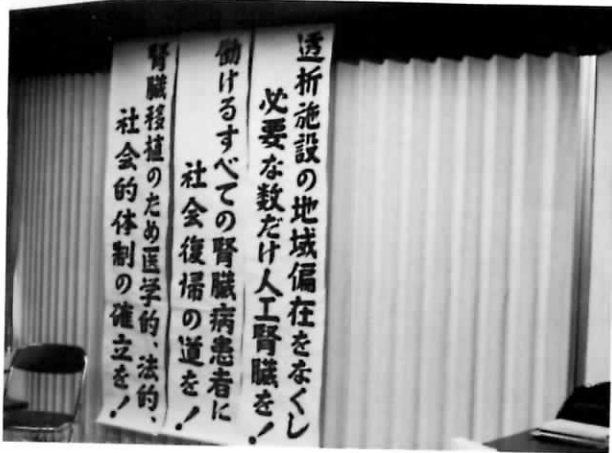 透析施設の地域偏在をなくし
必要な数だけ人工腎臓を!
働けるすべての腎臓病患者に
社会復帰の道を!
腎臓移植のため医学的、法的、
社会的体制の確立を!